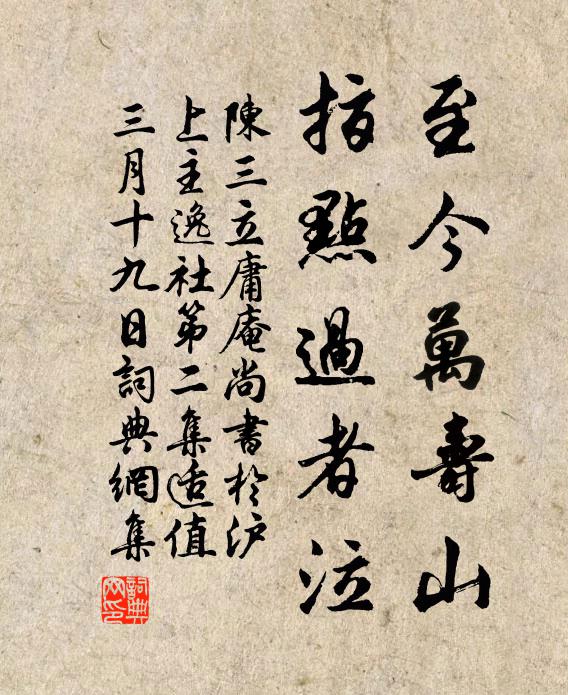 至今萬壽山
指點過者泣
陳三立庸庵尚書於沪
上主逸社第二集适值
三月十九日詞典網集
詞典
网印